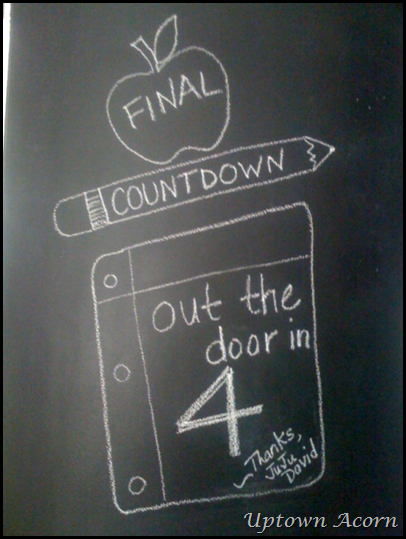 FINAL
COUNTDOWN
out the
door in
4
~Thanks,
JuJu
David
Uptown Acorn